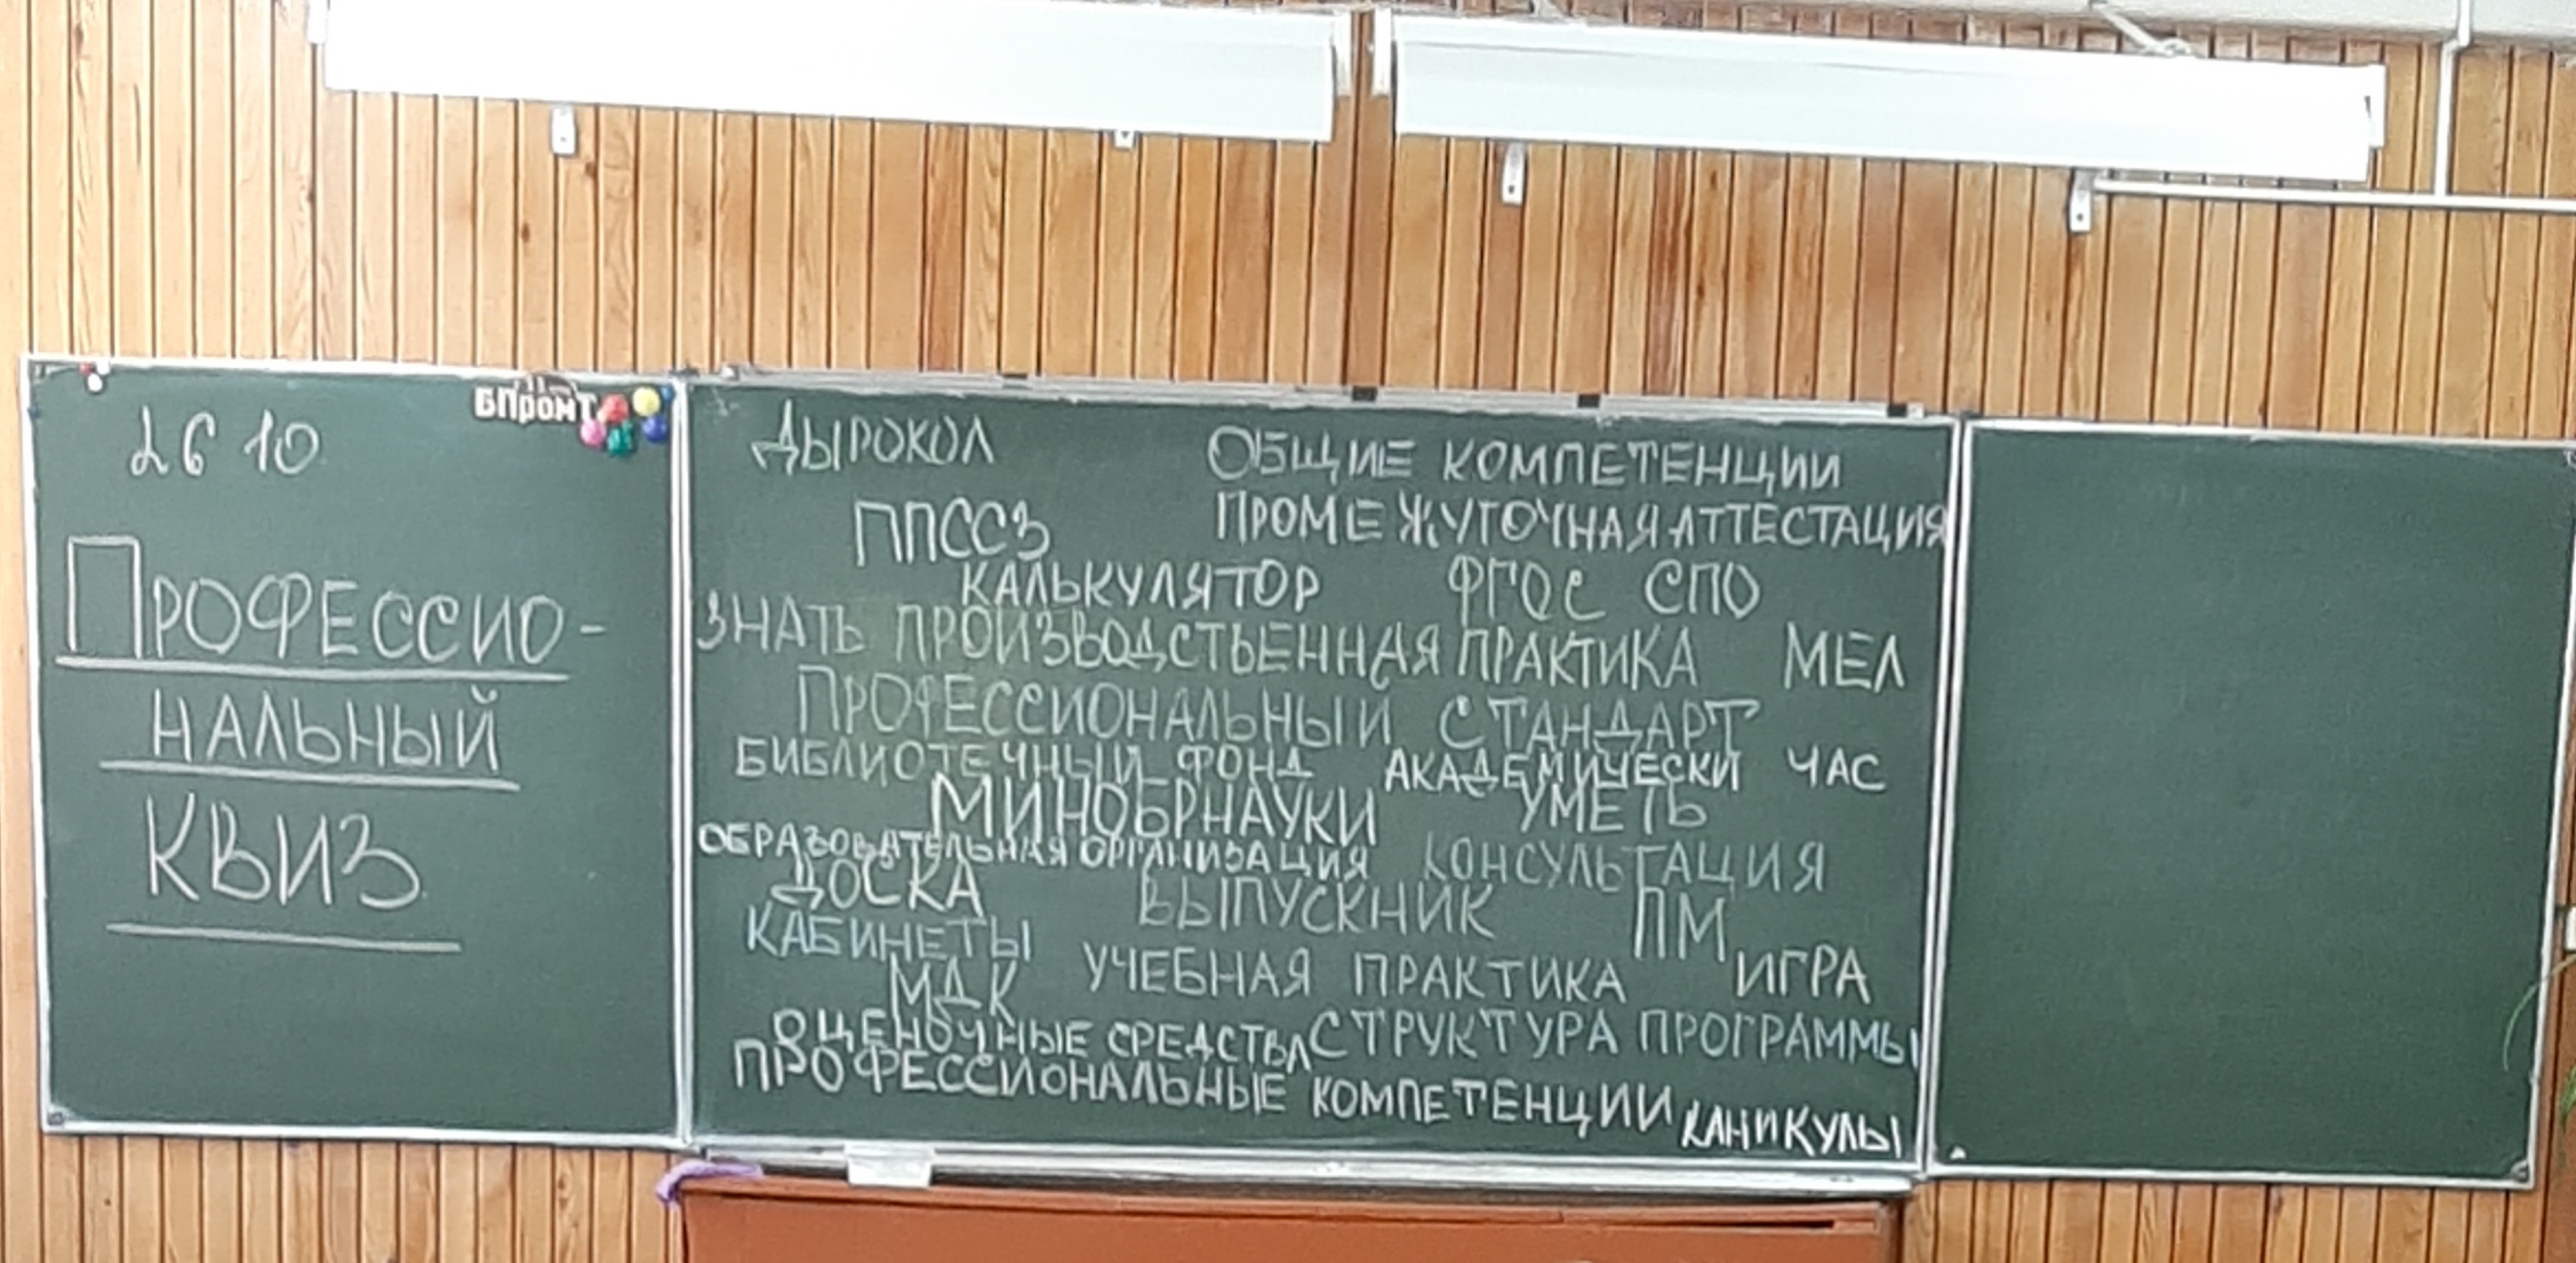 26 10
БПромТ
ПРОФЕССИО-
НАЛЬНЫЙ
КВИЗ
ДЫРОКОЛ ОБЩИЕ КОМПЕТЕНЦИИ
ППССЗ ПРОМЕЖУТОЧНАЯ АТТЕСТАЦИЯ
КАЛЬКУЛЯТОР ФГОС СПО
ЗНАТЬ ПРОИЗВОДСТВЕННАЯ ПРАКТИКА МЕЛ
ПРОФЕССИОНАЛЬНЫЙ СТАНДАРТ
БИБЛИОТЕЧНЫЙ ФОНД АКАДЕМИЧЕСКИ ЧАС
МИНОБРНАУКИ УМЕТЬ
ОБРАЗОВАТЕЛЬНАЯ ОРГАНИЗАЦИЯ КОНСУЛЬТАЦИЯ
ДОСКА ВЫПУСКНИК ПМ
КАБИНЕТЫ УЧЕБНАЯ ПРАКТИКА ИГРА
МДК
ОЦЕНОЧНЫЕ СРЕДСТВА СТРУКТУРА ПРОГРАММЫ
ПРОФЕССИОНАЛЬНЫЕ КОМПЕТЕНЦИИ КАНИКУЛЫ